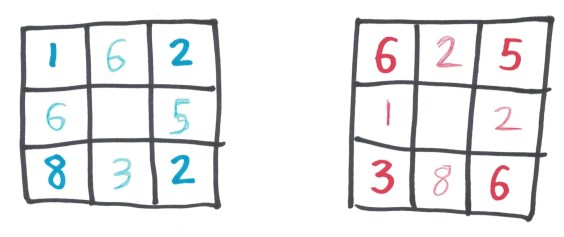 1 6 2
6 5
8 3 2
6 2 5
1 2
3 8 6